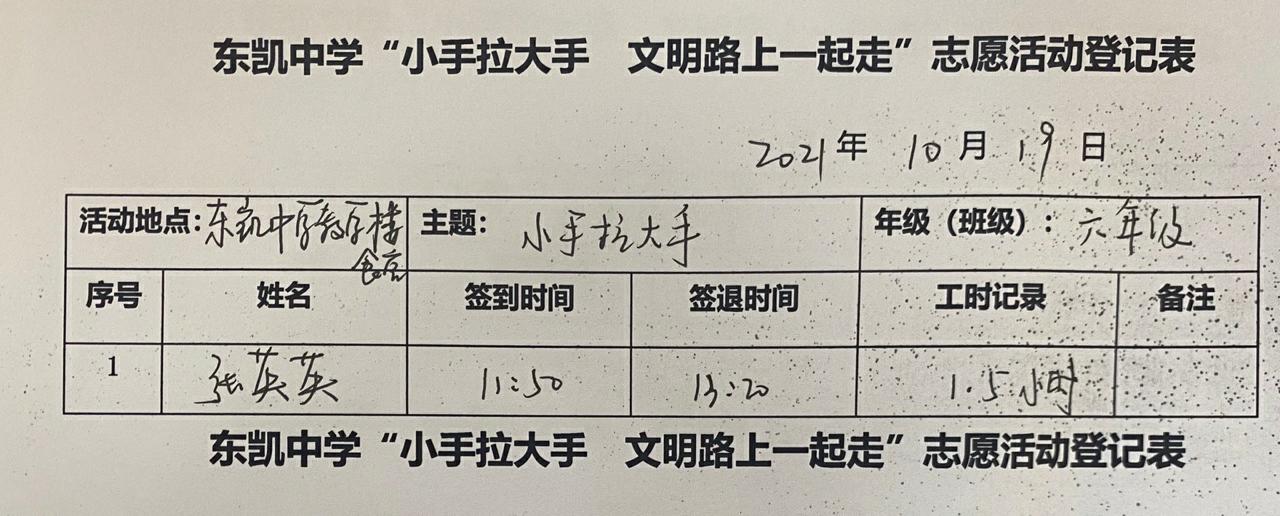 东凯中学“小手拉大手 文明路上一起走”志愿活动登记表
2021年 10月 19日
活动地点:东凯中学教学楼 主题: 小手拉大手 年级（班级）: 六年级
食堂
序号 姓名 签到时间 签退时间 工时记录 备注
1 张英英 11:50 13:20 1.5小时
东凯中学“小手拉大手 文明路上一起走”志愿活动登记表